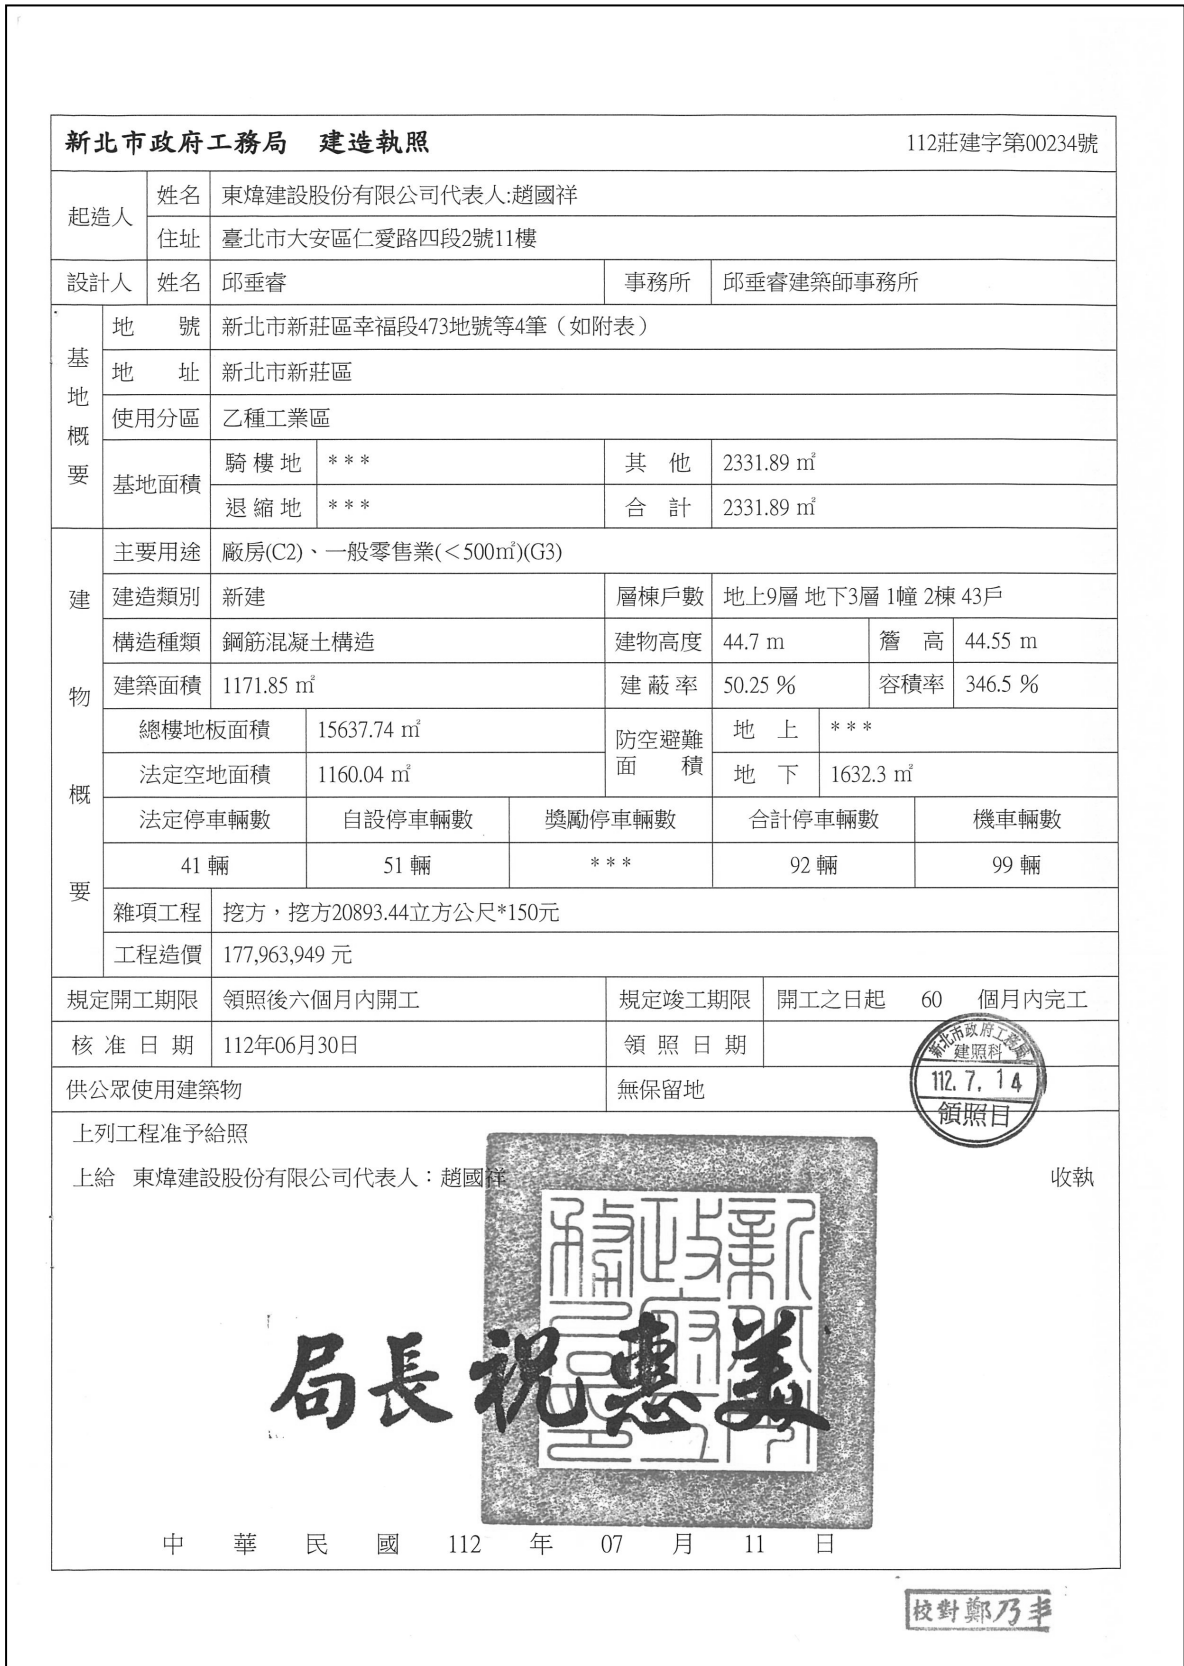 新北市政府工務局 建造執照 112莊建字第00234號
起造人 姓名 東煒建設股份有限公司代表人:趙國祥
住址 臺北市大安區仁愛路四段2號11樓
設計人 姓名 邱垂睿 事務所 邱垂睿建築師事務所
基地概要
地號 新北市新莊區幸福段473地號等4筆（如附表）
地址 新北市新莊區
使用分區 乙種工業區
基地面積 騎樓地 *** 其他 2331.89 ㎡
退縮地 *** 合計 2331.89 ㎡
建物概要
主要用途 廠房(C2)、一般零售業(＜500㎡)(G3)
建造類別 新建 層棟戶數 地上9層 地下3層 1幢 2棟 43戶
構造種類 鋼筋混凝土構造 建物高度 44.7 m 簷高 44.55 m
建築面積 1171.85 ㎡ 建蔽率 50.25 % 容積率 346.5 %
總樓地板面積 15637.74 ㎡ 防空避難面積 地上 ***
法定空地面積 1160.04 ㎡ 地下 1632.3 ㎡
法定停車輛數 自設停車輛數 獎勵停車輛數 合計停車輛數 機車輛數
41 輛 51 輛 *** 92 輛 99 輛
雜項工程 挖方，挖方20893.44立方公尺*150元
工程造價 177,963,949 元
規定開工期限 領照後六個月內開工 規定竣工期限 開工之日起 60 個月內完工
核准日期 112年06月30日 領照日期
新北市政府工務局
建照科
112. 7. 14
領照日
供公眾使用建築物 無保留地
上列工程准予給照
上給 東煒建設股份有限公司代表人：趙國祥 收執
新北市政府工務局印
局長祝惠美
中華民國 112 年 07 月 11 日
校對鄭乃丰